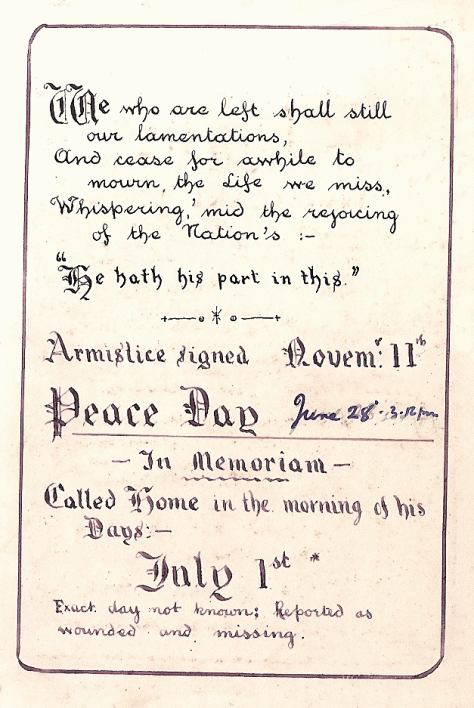 We who are left shall still
our lamentations,
And cease for awhile to
mourn, the Life we miss,
Whispering,'mid the rejoicing
of the Nation's :-
"He hath his part in this."
Armistice signed Novemr: 11th
Peace Day June 28. 3.12 pm
- In Memoriam -
Called Home in the morning of his
Days:-
July 1st *
Exact day not known; Reported as
wounded and missing.